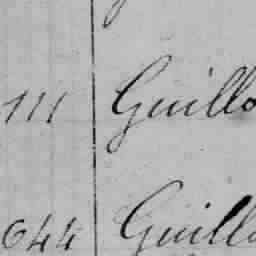 111 Guillo
644 Guillo